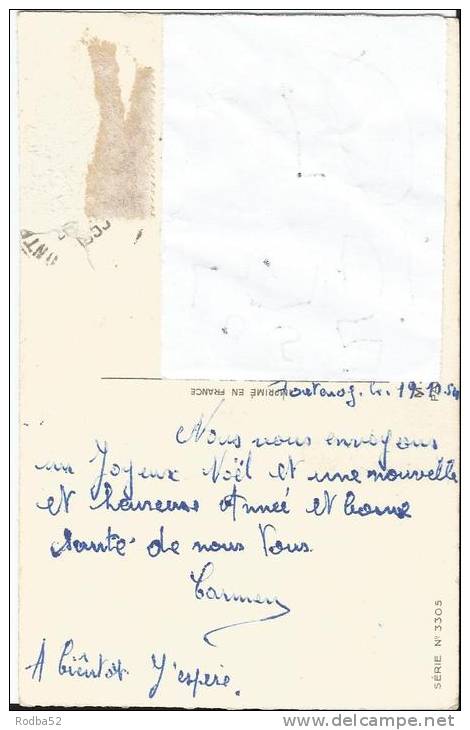 IMPRIMÉ EN FRANCE
Nous vous envoyons
un Joyeux Noël et une nouvelle
et heureuse Année et bonne
Santé de nous Tous.
Carmen
A bientôt J'espère.
SÉRIE N° 3305
Rodba52
delcampe.net